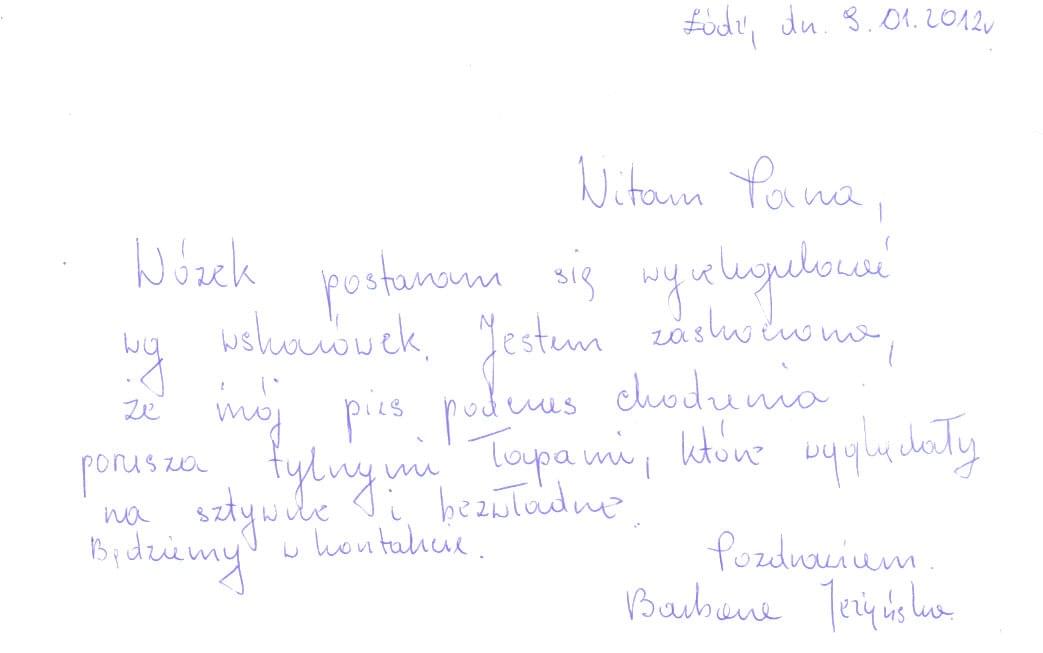 Łódź, dn. 9.01.2012r
Witam Pana,
Wózek postaram się wyekspulować
wg wskazówek. Jestem zaskoczona,
że mój pies podczas chodzenia
porusza tylnymi łapami, które wyglądały
na sztywne i bezwładne.
Będziemy w kontakcie.
Pozdrawiam.
Barbara Jerzyńska